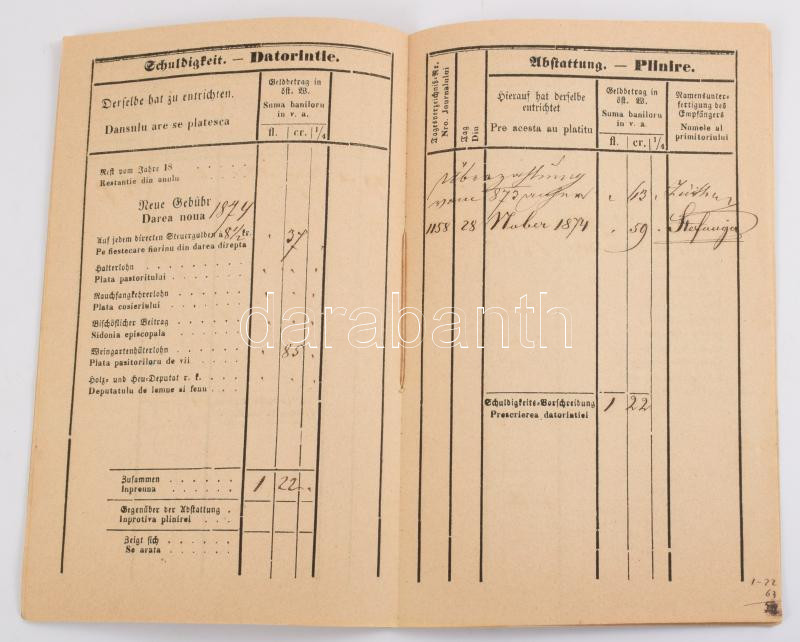 Schuldigkeit. — Datorintie.
Derselbe hat zu entrichten.
Dansulu are se platesca
Geldbetrag in
öst. W.
Suma baniloru
in v. a.
fl. cr. 1/4
Rest vom Jahre 18 . . . . .
Restantie din anulu . . . . .
Neue Gebühr
Darea noua 1874
Auf jedem directen Steuergulden a 8 1/2 kr. . 37
Pe fiestecare fiorinu din darea direpta
Halterlohn . . . . .
Plata pastoritului . . . . .
Rauchfangkehrerlohn . . . .
Plata cosieriului . . . . .
Bischöflicher Beitrag . . . .
Sidonia episcopala . . . .
Weingartenhüterlohn . . . . 85 .
Plata pasitoriloru de vii . . .
Holz- und Heu-Deputat r. k. . . .
Deputatulu de lemne si fenu . . .
Zusammen . . . . . 1 22 .
Inpreuna . . . . .
Gegenüber der Abstattung .
Inprotiva plinirei . . .
Zeigt sich . . . . .
Se arata . . . . .
Abstattung. — Plinire.
Tagesverzeichniß-Nr.
Nro. Journalului
Tag
Din
Hierauf hat derselbe
entrichtet
Pre acesta au platitu
Geldbetrag in
öst. W.
Suma baniloru
in v. a.
fl. cr. 1/4
Namensunter-
fertigung des
Empfängers
Numele al
primitoriului
Überzahlung
vom 873 . 63 .
1158 28 Nober 1874 . 59 .
Schuldigkeits-Vorschreibung 1 22
Prescrierea datorintiei
1-22
63
darabanth